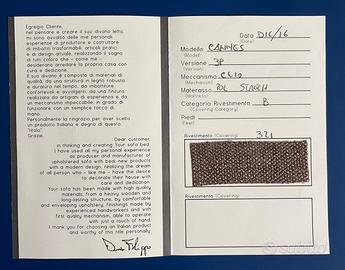 Egregio Cliente,
nel pensare e creare il suo divano letto,
mi sono avvalso delle mie personali
esperienze di produttore e costruttore
di imbottiti trasformabili, articoli pratici
e di design attuale, realizzando il sogno
di tutti coloro che - come me -
desiderano arredare la propria casa con
cura e dedizione.
Il suo divano è composto di materiali di
qualità, da una struttura in legno robusta
e duratura nel tempo, da imbottiture
confortevoli e avvolgenti, da una finitura
realizzata da artigiani di esperienza e da
un meccanismo impeccabile, in grado di
funzionare con un semplice tocco di
mano.
Personalmente la ringrazio per aver scelto
un prodotto italiano e degno di questo
"titolo".
Grazie.
Dear customer,
in thinking and creating Your sofa bed,
I have used all my personal experience
as producer and manufacturer of
upholstered sofa with bed, new products
with a modern design, realizing the dream
of all person who - like me - have the desire
to decorate their house with
care and dedication.
Your sofa has been made with high quality
materials, from a heavy wooden and
long-lasting structure, by comfortable
and enveloping upholstery, finishings made by
experienced handworkers and with
first quality mechanism, able to operate
with just a touch of hand.
I thank you for choosing an Italian product
and worthy of this title personally.
Data DIC/16
(Date)
Modello CANNES
(Model)
Versione 3P
(Version)
Meccanismo CLIO
(Mechanism)
Materasso POL STACCH
(Mattress)
Categoria Rivestimento B
(Covering Category)
Piedi
(Feet)
Rivestimento (Covering) 321
Rivestimento (Covering)